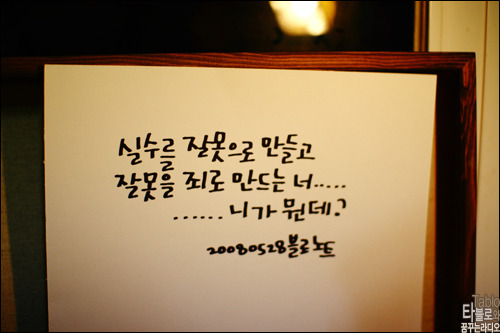 실수를 잘못으로 만들고
잘못을 죄로 만드는 너.....
...... 니가 뭔데?
20080528블로노트
Tablo
타블로의
꿈꾸는라디오